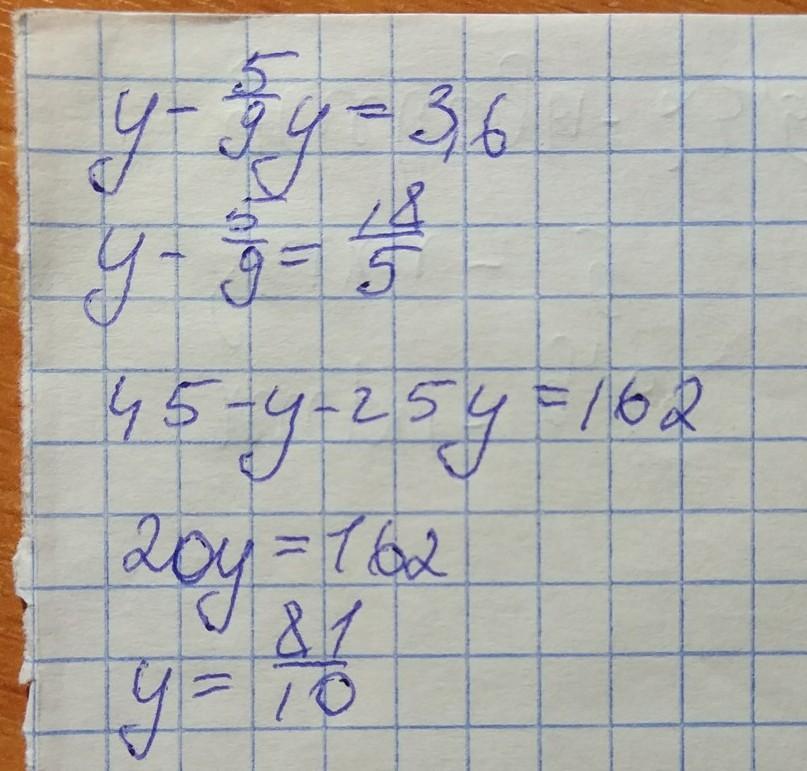 y - 5/9 y = 3,6
y - 5/9 = 18/5
45 - y - 25y = 162
20y = 162
y = 81/10